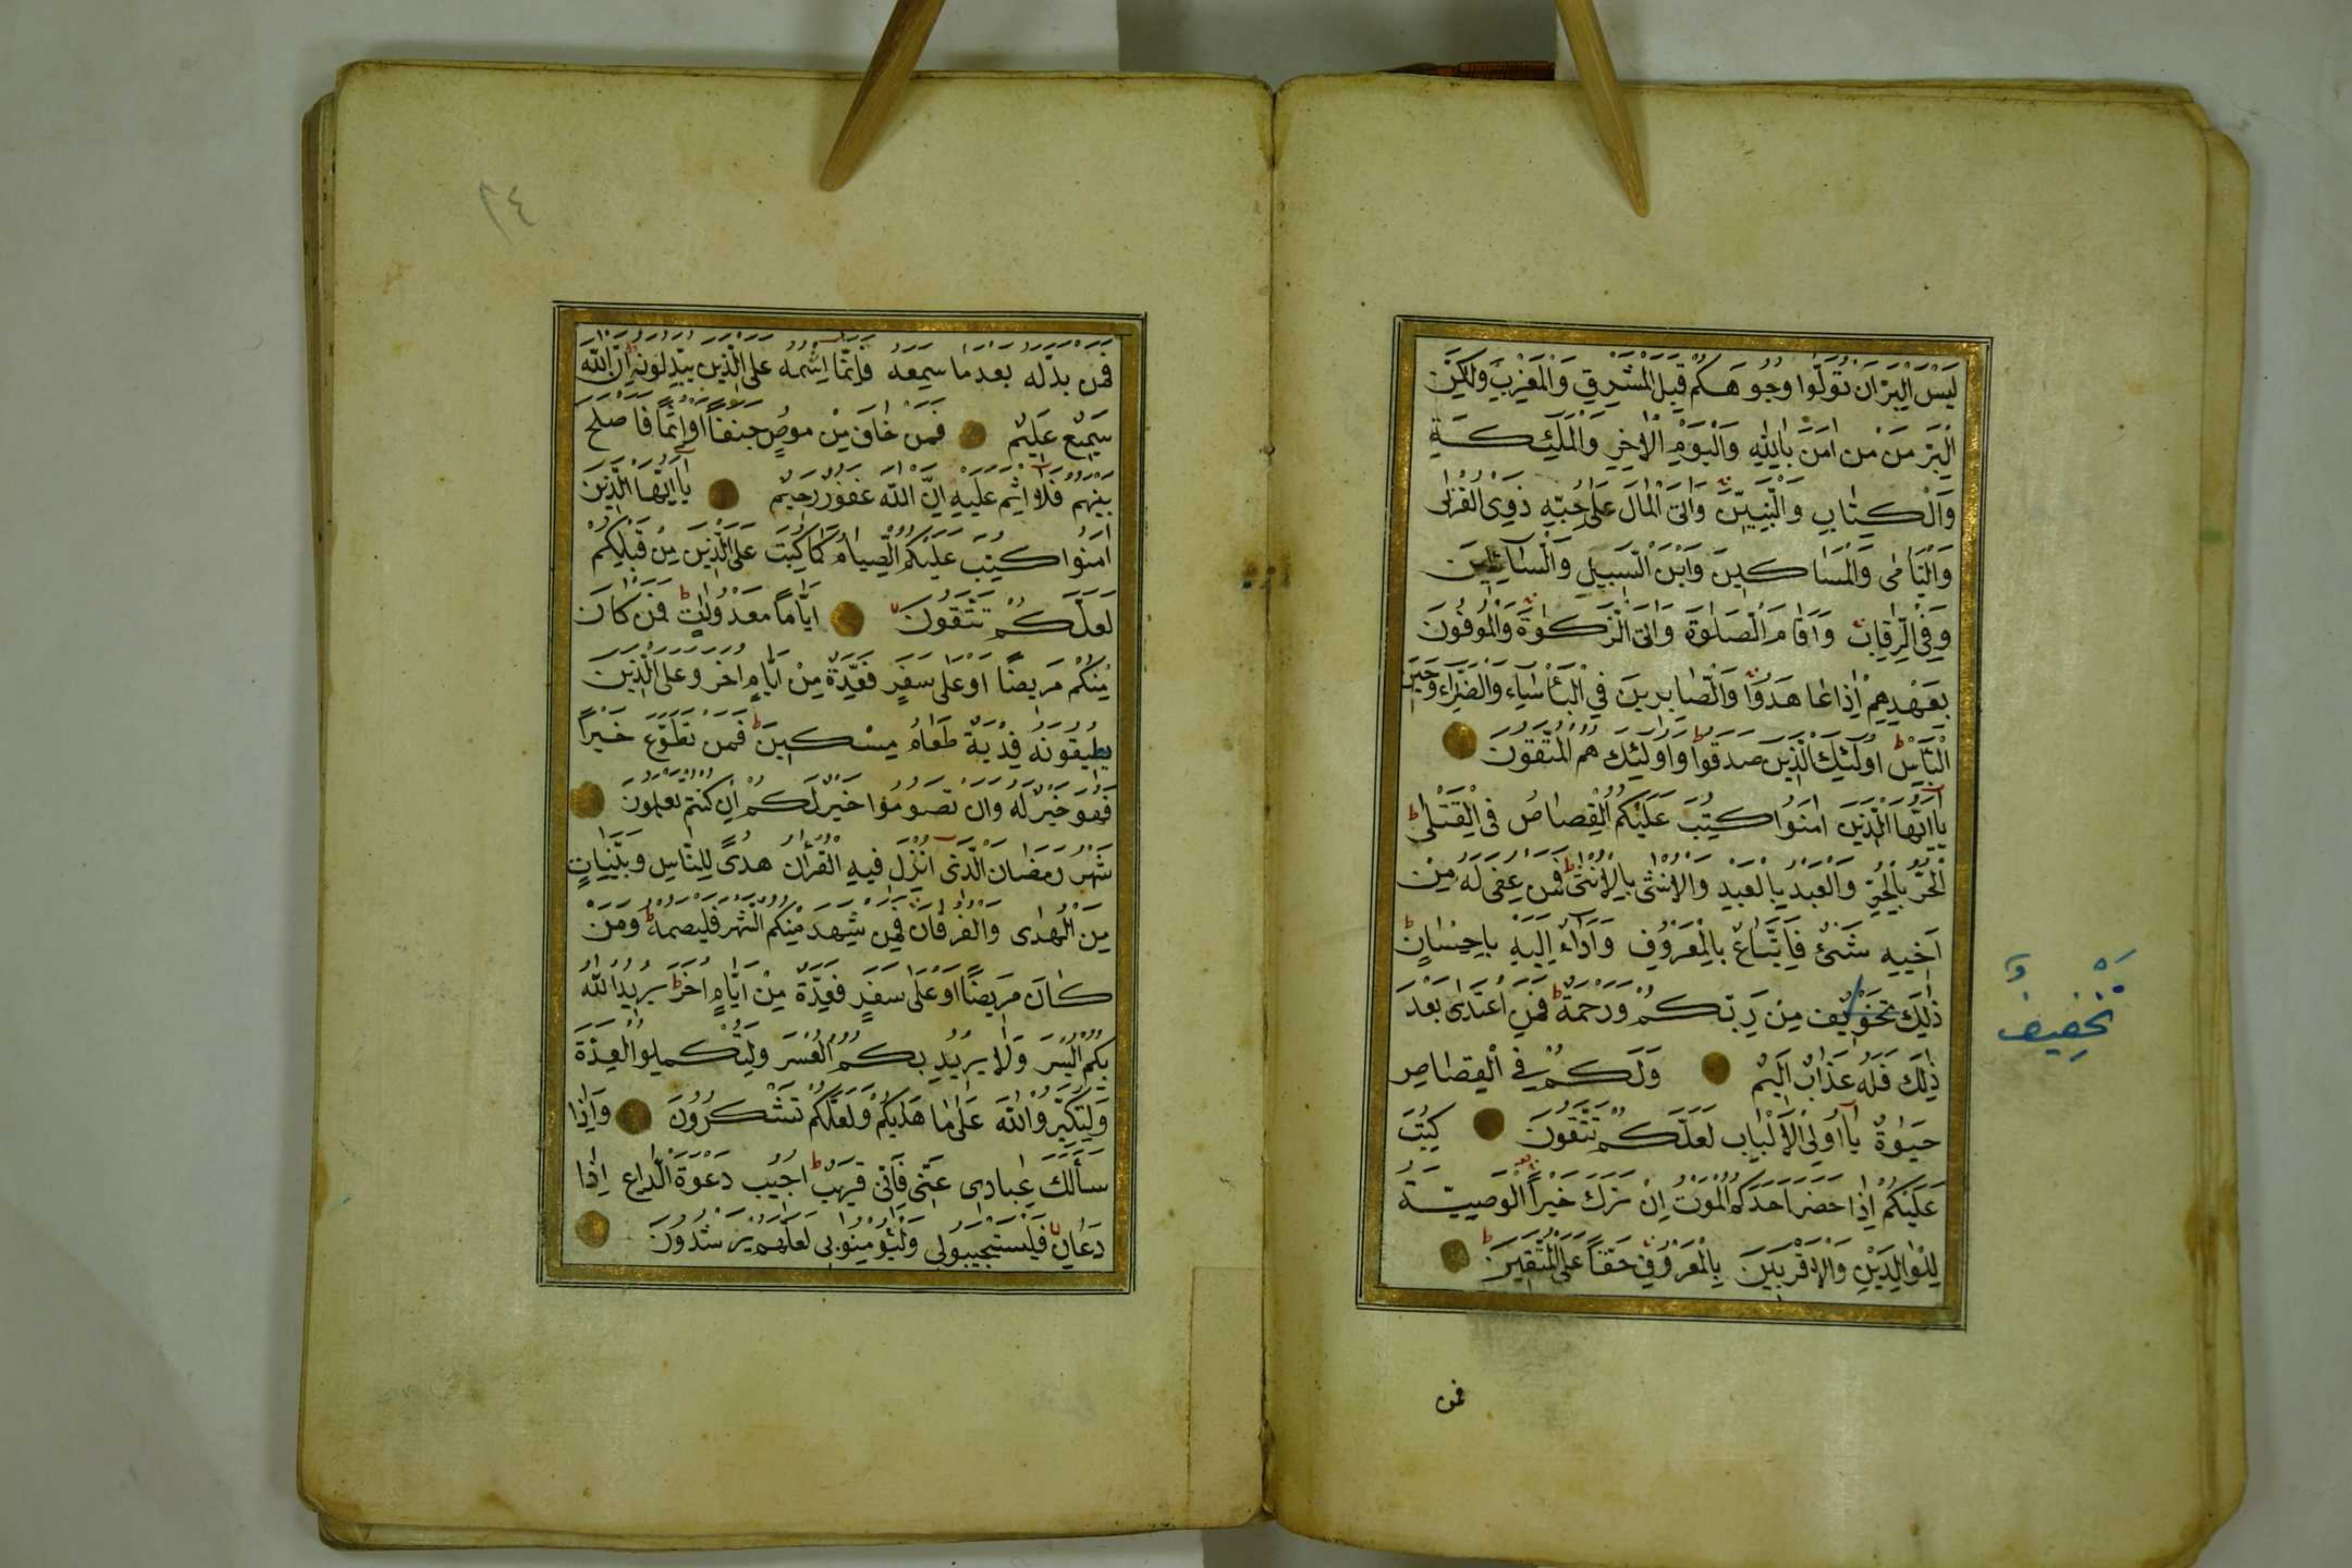 لَيْسَ الْبِرَّ اَنْ تُوَلّوُا وُجُوهَكُمْ قِبَلَ الْمَشْرِقِ وَالْمَغْرِبِ وَلٰكِنَّ
الْبِرَّ مَنْ مَن اٰمَنَ بِاللّٰهِ وَالْيَوْمِ الْاٰخِرِ وَالْمَلٰئِكَةِ
وَالْكِتَابِ وَالنَّبِيّنَ وَاٰتَى الْمَالَ عَلٰى حُبِّهِ ذَوِى الْقُرْبٰى
وَالْيَتَامٰى وَالْمَسَاكِينَ وَابْنَ السَّبِيلِ وَالسَّائِلِينَ
وَفِى الرِّقَابِ وَاَقَامَ الصَّلٰوةَ وَاٰتَى الزَّكٰوةَ وَالْمُوفُونَ
بِعَهْدِهِمْ اِذَا عَاهَدُوا وَالصَّابِرِينَ فِي الْبَأْسَاءِ وَالضَّرَّاءِ وَحِينَ
الْبَأْسِ اُولٰئِكَ الَّذِينَ صَدَقُوا وَاُولٰئِكَ هُمُ الْمُتَّقُونَ
يَا اَيُّهَا الَّذِينَ اٰمَنُوا كُتِبَ عَلَيْكُمُ الْقِصَاصُ فِى الْقَتْلٰى
اَلْحُرُّ بِالْحُرِّ وَالْعَبْدُ بِالْعَبْدِ وَالْاُنْثٰى بِالْاُنْثٰى فَمَنْ عُفِىَ لَهُ مِنْ
اَخِيهِ شَىْءٌ فَاتِّبَاعٌ بِالْمَعْرُوفِ وَاَدَاءٌ اِلَيْهِ بِاِحْسَانٍ
ذٰلِكَ تَخْوِيفٌ مِنْ رَبِّكُمْ وَرَحْمَةٌ فَمَنِ اعْتَدٰى بَعْدَ
تَخْفِيفٌ
ذٰلِكَ فَلَهُ عَذَابٌ اَلِيمٌ وَلَكُمْ فِي الْقِصَاصِ
حَيٰوةٌ يَا اُولِى الْاَلْبَابِ لَعَلَّكُمْ تَتَّقُونَ كُتِبَ
عَلَيْكُمْ اِذَا حَضَرَ اَحَدَكُمُ الْمَوْتُ اِنْ تَرَكَ خَيْراً الْوَصِيَّةُ
لِلْوَالِدَيْنِ وَالْاَقْرَبِينَ بِالْمَعْرُوفِ حَقّاً عَلَى الْمُتَّقِينَ
فمن
٢٤
فَمَنْ بَدَّلَهُ بَعْدَ مَا سَمِعَهُ فَاِنَّمَا اِثْمُهُ عَلَى الَّذِينَ يُبَدِّلُونَهُ اِنَّ اللّٰهَ
سَمِيعٌ عَلِيمٌ فَمَنْ خَافَ مِنْ مُوصٍ جَنَفاً اَوْ اِثْماً فَاَصْلَحَ
بَيْنَهُمْ فَلَا اِثْمَ عَلَيْهِ اِنَّ اللّٰهَ غَفُورٌ رَحِيمٌ يَا اَيُّهَا الَّذِينَ
اٰمَنُوا كُتِبَ عَلَيْكُمُ الصِّيَامُ كَمَا كُتِبَ عَلَى الَّذِينَ مِنْ قَبْلِكُمْ
لَعَلَّكُمْ تَتَّقُونَ اَيَّاماً مَعْدُودَاتٍ فَمَنْ كَانَ
مِنْكُمْ مَرِيضاً اَوْ عَلٰى سَفَرٍ فَعِدَّةٌ مِنْ اَيَّامٍ اُخَرَ وَعَلَى الَّذِينَ
يُطِيقُونَهُ فِدْيَةٌ طَعَامُ مِسْكِينٍ فَمَنْ تَطَوَّعَ خَيْراً
فَهُوَ خَيْرٌ لَهُ وَاَنْ تَصُومُوا خَيْرٌ لَكُمْ اِنْ كُنْتُمْ تَعْلَمُونَ
شَهْرُ رَمَضَانَ الَّذِى اُنْزِلَ فِيهِ الْقُرْاٰنُ هُدًى لِلنَّاسِ وَبَيِّنَاتٍ
مِنَ الْهُدٰى وَالْفُرْقَانِ فَمَنْ شَهِدَ مِنْكُمُ الشَّهْرَ فَلْيَصُمْهُ وَمَنْ
كَانَ مَرِيضاً اَوْ عَلٰى سَفَرٍ فَعِدَّةٌ مِنْ اَيَّامٍ اُخَرَ يُرِيدُ اللّٰهُ
بِكُمُ الْيُسْرَ وَلَا يُرِيدُ بِكُمُ الْعُسْرَ وَلِتُكْمِلُوا الْعِدَّةَ
وَلِتُكَبِّرُوا اللّٰهَ عَلٰى مَا هَدٰيكُمْ وَلَعَلَّكُمْ تَشْكُرُونَ وَاِذَا
سَأَلَكَ عِبَادِى عَنِّى فَاِنِّى قَرِيبٌ اُجِيبُ دَعْوَةَ الدَّاعِ اِذَا
دَعَانِ فَلْيَسْتَجِيبُوا لِى وَلْيُؤْمِنُوا بِى لَعَلَّهُمْ يَرْشُدُونَ